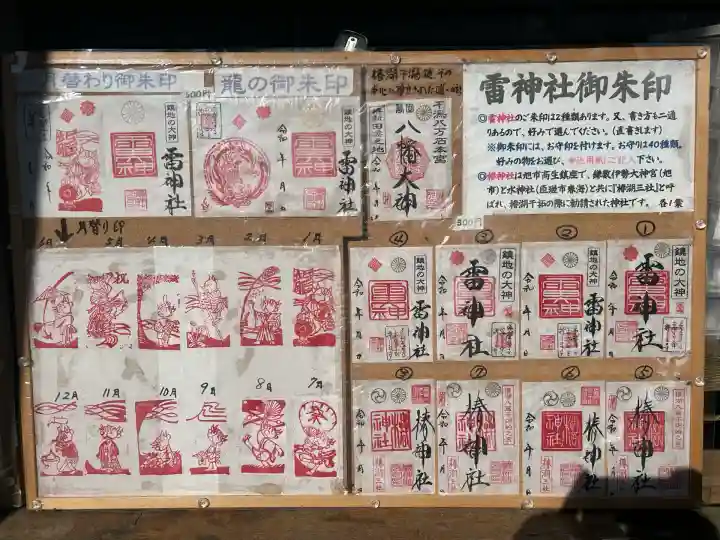 月替わり御朱印
500円
鎮地の大神
雷神社
令和 年 月
龍の御朱印
鎮地の大神
雷神社
令和 年 月
干潟八万石本宮
八幡大神
500円
雷神社御朱印
◎雷神社のご朱印は2種類あります。又、書き方も二通
りあるので、好みで選んでください。(直書きします)
※御朱印には、お守印を付けます。お守りは40種類。
好みの物をお選び、※池用紙にご記入下さい。
◎椿神社は旭市両生鎮座で、鎌数伊勢大神宮(旭
市)と水神社(匝瑳市春海)と共に「椿湖三社」と呼
ばれ、椿湖干拓の際に勧請された神社です。
月替り印
6月 5月 4月 3月 2月 1月
祝
12月 11月 10月 9月 8月 7月
④ ③ ② ①
鎮地の大神
雷神社
令和 年 月 日
鎮地の大神
雷神社
令和 年 月 日
鎮地の大神
雷神社
令和 年 月 日
鎮地の大神
雷神社
令和 年 月 日
⑧ ⑦ ⑥ ⑤
椿神社
令和 年 月 日
椿神社
令和 年 月 日
椿神社
令和 年 月 日
椿神社
令和 年 月 日